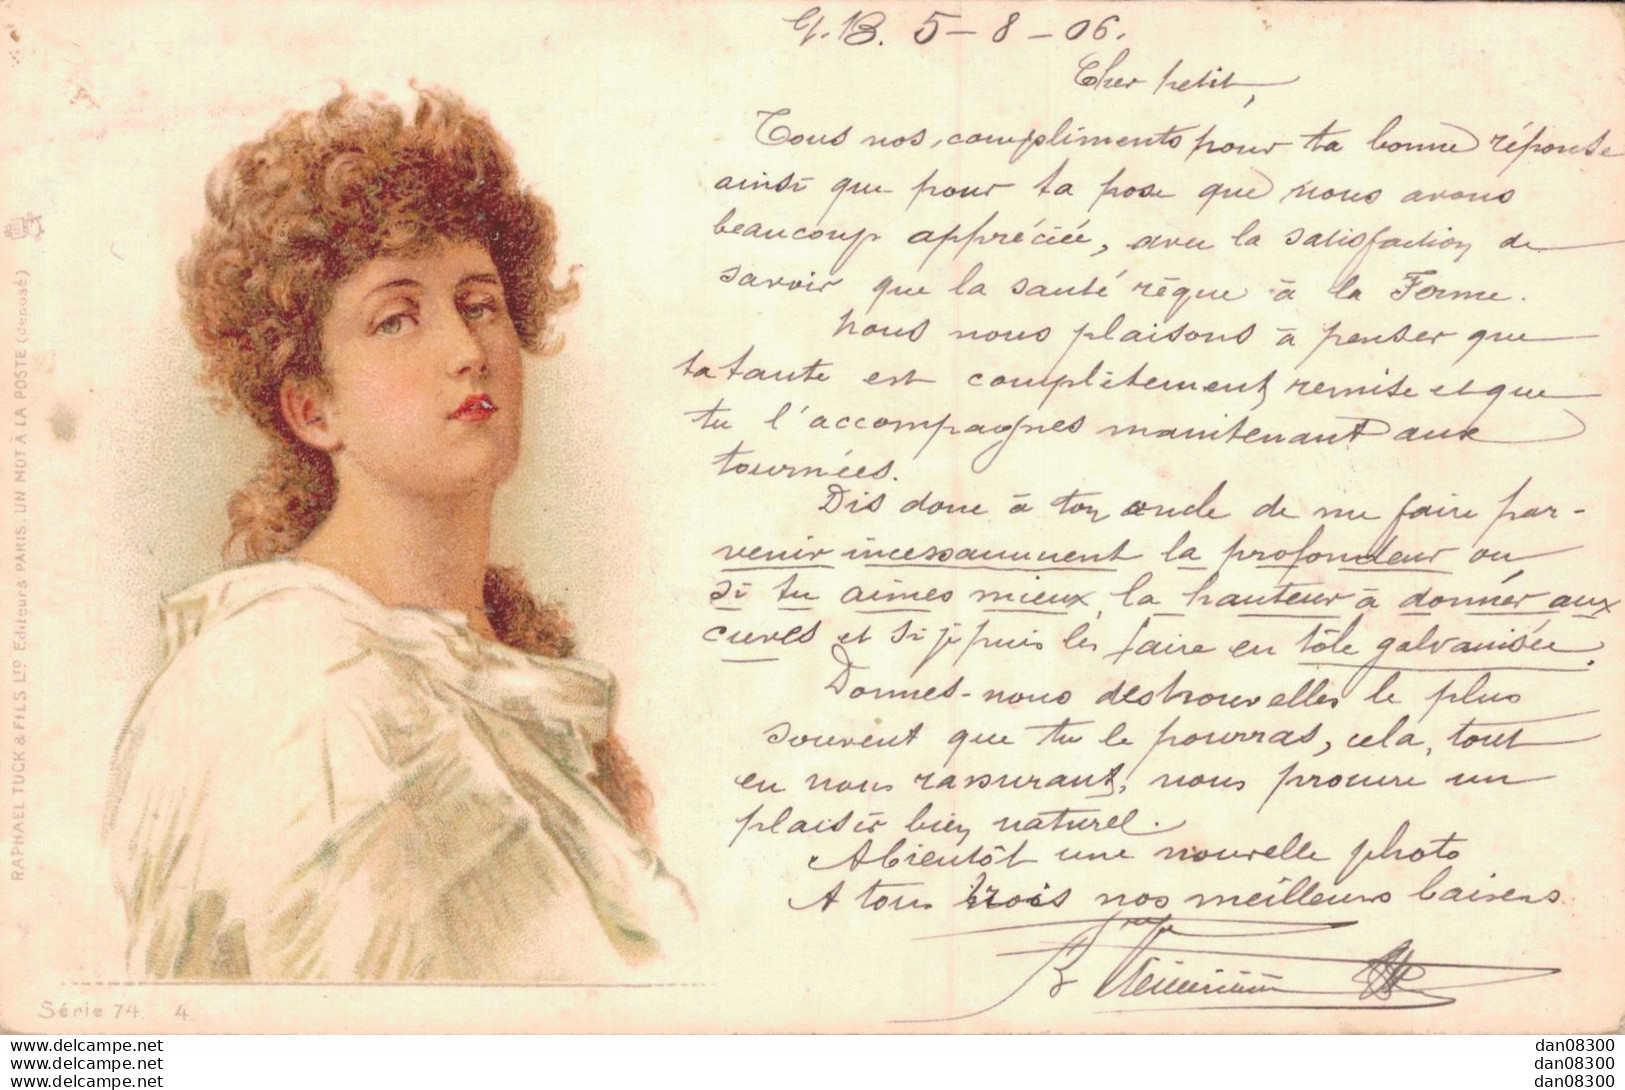 5-8-06.
Cher petit,
Tous nos compliments pour ta bonne réponse
ainsi que pour ta pose que nous avons
beaucoup appréciée, avec la satisfaction de
savoir que la santé règne à la Ferme.
Nous nous plaisons à penser que
ta tante est complètement remise et que
tu l'accompagnes maintenant aux
tournées.
Dis donc à ton oncle de me faire par-
venir incessamment la profondeur ou
si tu aimes mieux la hauteur à donner aux
cuves et si je puis les faire en tôle galvanisée.
Donnes-nous des nouvelles le plus
souvent que tu le pourras, cela, tout
en nous rassurant, nous procure un
plaisir bien naturel.
A bientôt une nouvelle photo
A tous trois nos meilleurs baisers
RAPHAEL TUCK & FILS LTD Editeurs PARIS UN MOT À LA POSTE (déposé)
Série 74. 4.
www.delcampe.net
www.delcampe.net
www.delcampe.net
dan08300
dan08300
dan08300